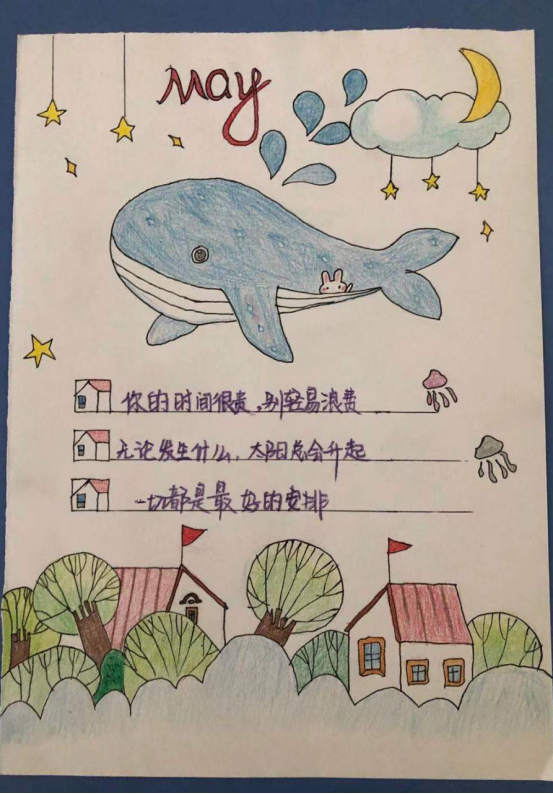 May
你的时间很贵，别轻易浪费
无论发生什么，太阳总会升起
一切都是最好的安排